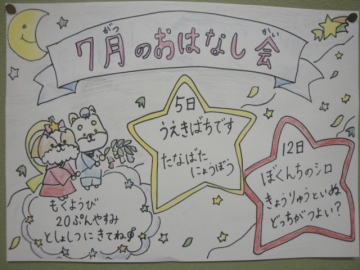 7月のおはなし会
がつ かい
5日
うえきばちです
たなばた
にょうぼう
12日
ぼくんちのシロ
きょうりゅうといぬ
どっちがつよい?
もくようび
20ぷんやすみ
としょしつにきてね